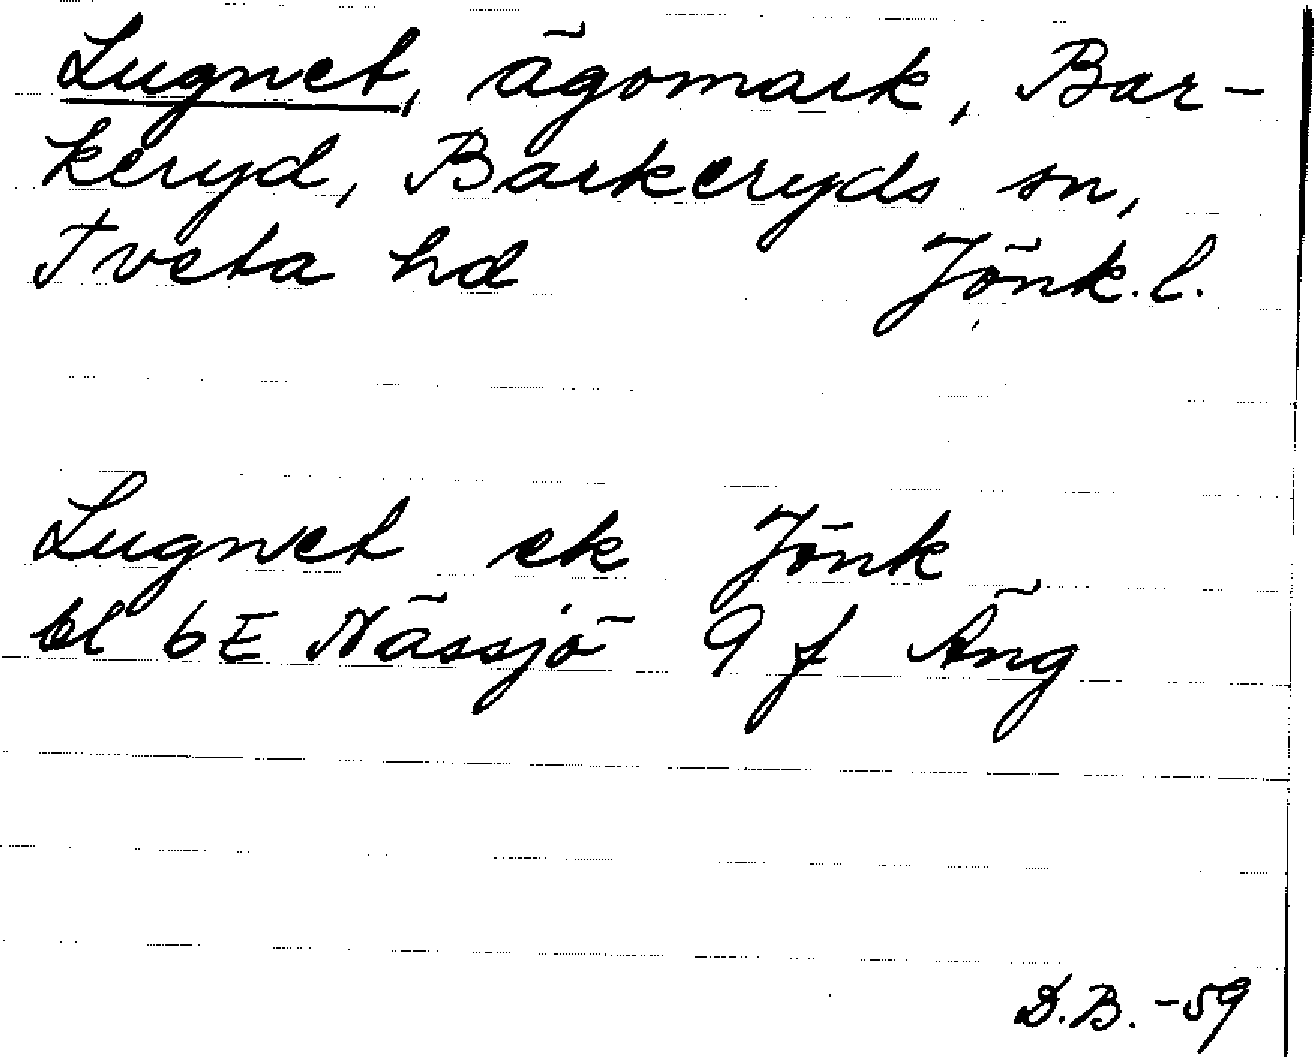 Lugnet, ägomark, Bar-
keryd, Barkeryds sn,
Tveta hd Jönk. l.
Lugnet ek Jönk
bl 6E Nässjö 9 f Äng
D.B. -59